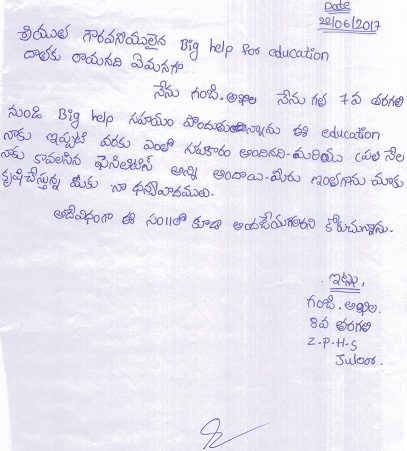 Date
22/06/2017
శ్రీయుత గౌరవనీయులైన Big help for education
దాతకు రాయునది ఏమనగా
నేను గంజి. అఖిల నేను గత 7వ తరగతి
నుండి Big help సహాయం పొందుతున్నాను ఈ education
నాకు ఇప్పటి వరకు ఎంతో సహకారం అందినది. మరియు ప్రతి నెల
నాకు కావలసిన ఫెసిలిటిస్ అన్ని అందాయి. మీరు ఇంతగాను మాకు
కృషిచేస్తున్న మీకు నా ధన్యవాదములు.
అదేవిధంగా ఈ సం॥లో కూడా అందజేయగలరని కోరుచున్నాను.
ఇట్లు,
గంజి. అఖిల.
8వ తరగతి
Z.P.H.S
Juloor.